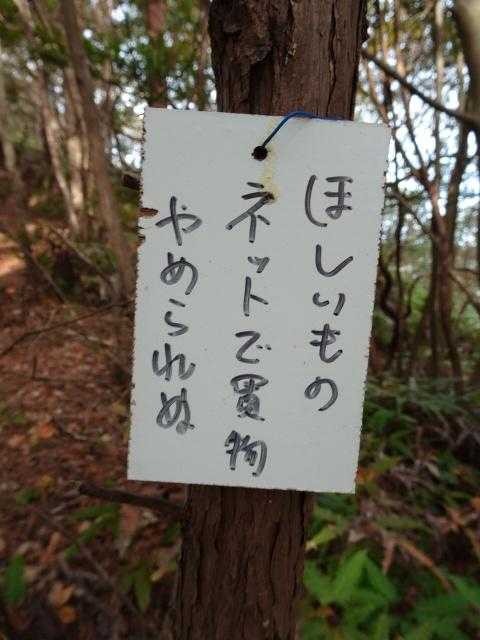 ほしいもの
ネットで買物
やめられぬ